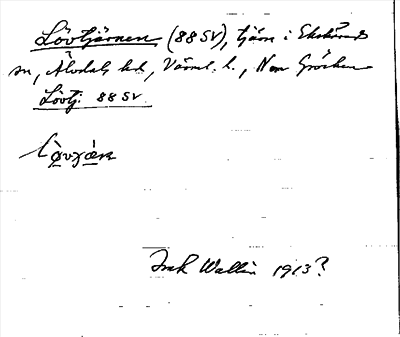 Lövtjärnen (88 SV), tjärn i Ekshärads
sn, Älvdals hd, Värml. l., N om Gröcken
Lövtj. 88 SV.
Wallin 1913?